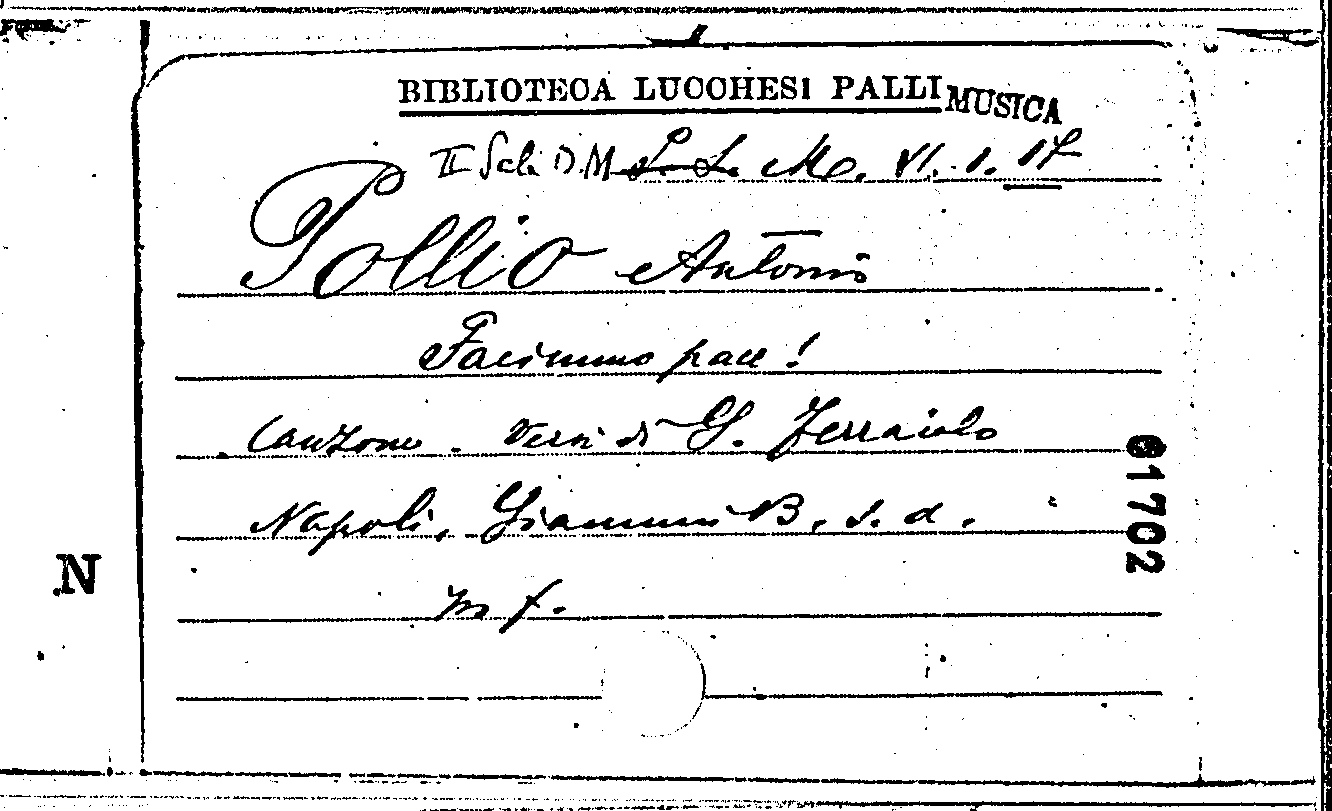 BIBLIOTECA LUCCHESI PALLI MUSICA
II Sala D.M. S. L. Mo. VI. 1. 17
Pollio Antonio
Facimmo pace!
Canzone. Versi di G. Ferraiolo
Napoli, Giannini B, s. d.
in f.
61702
N